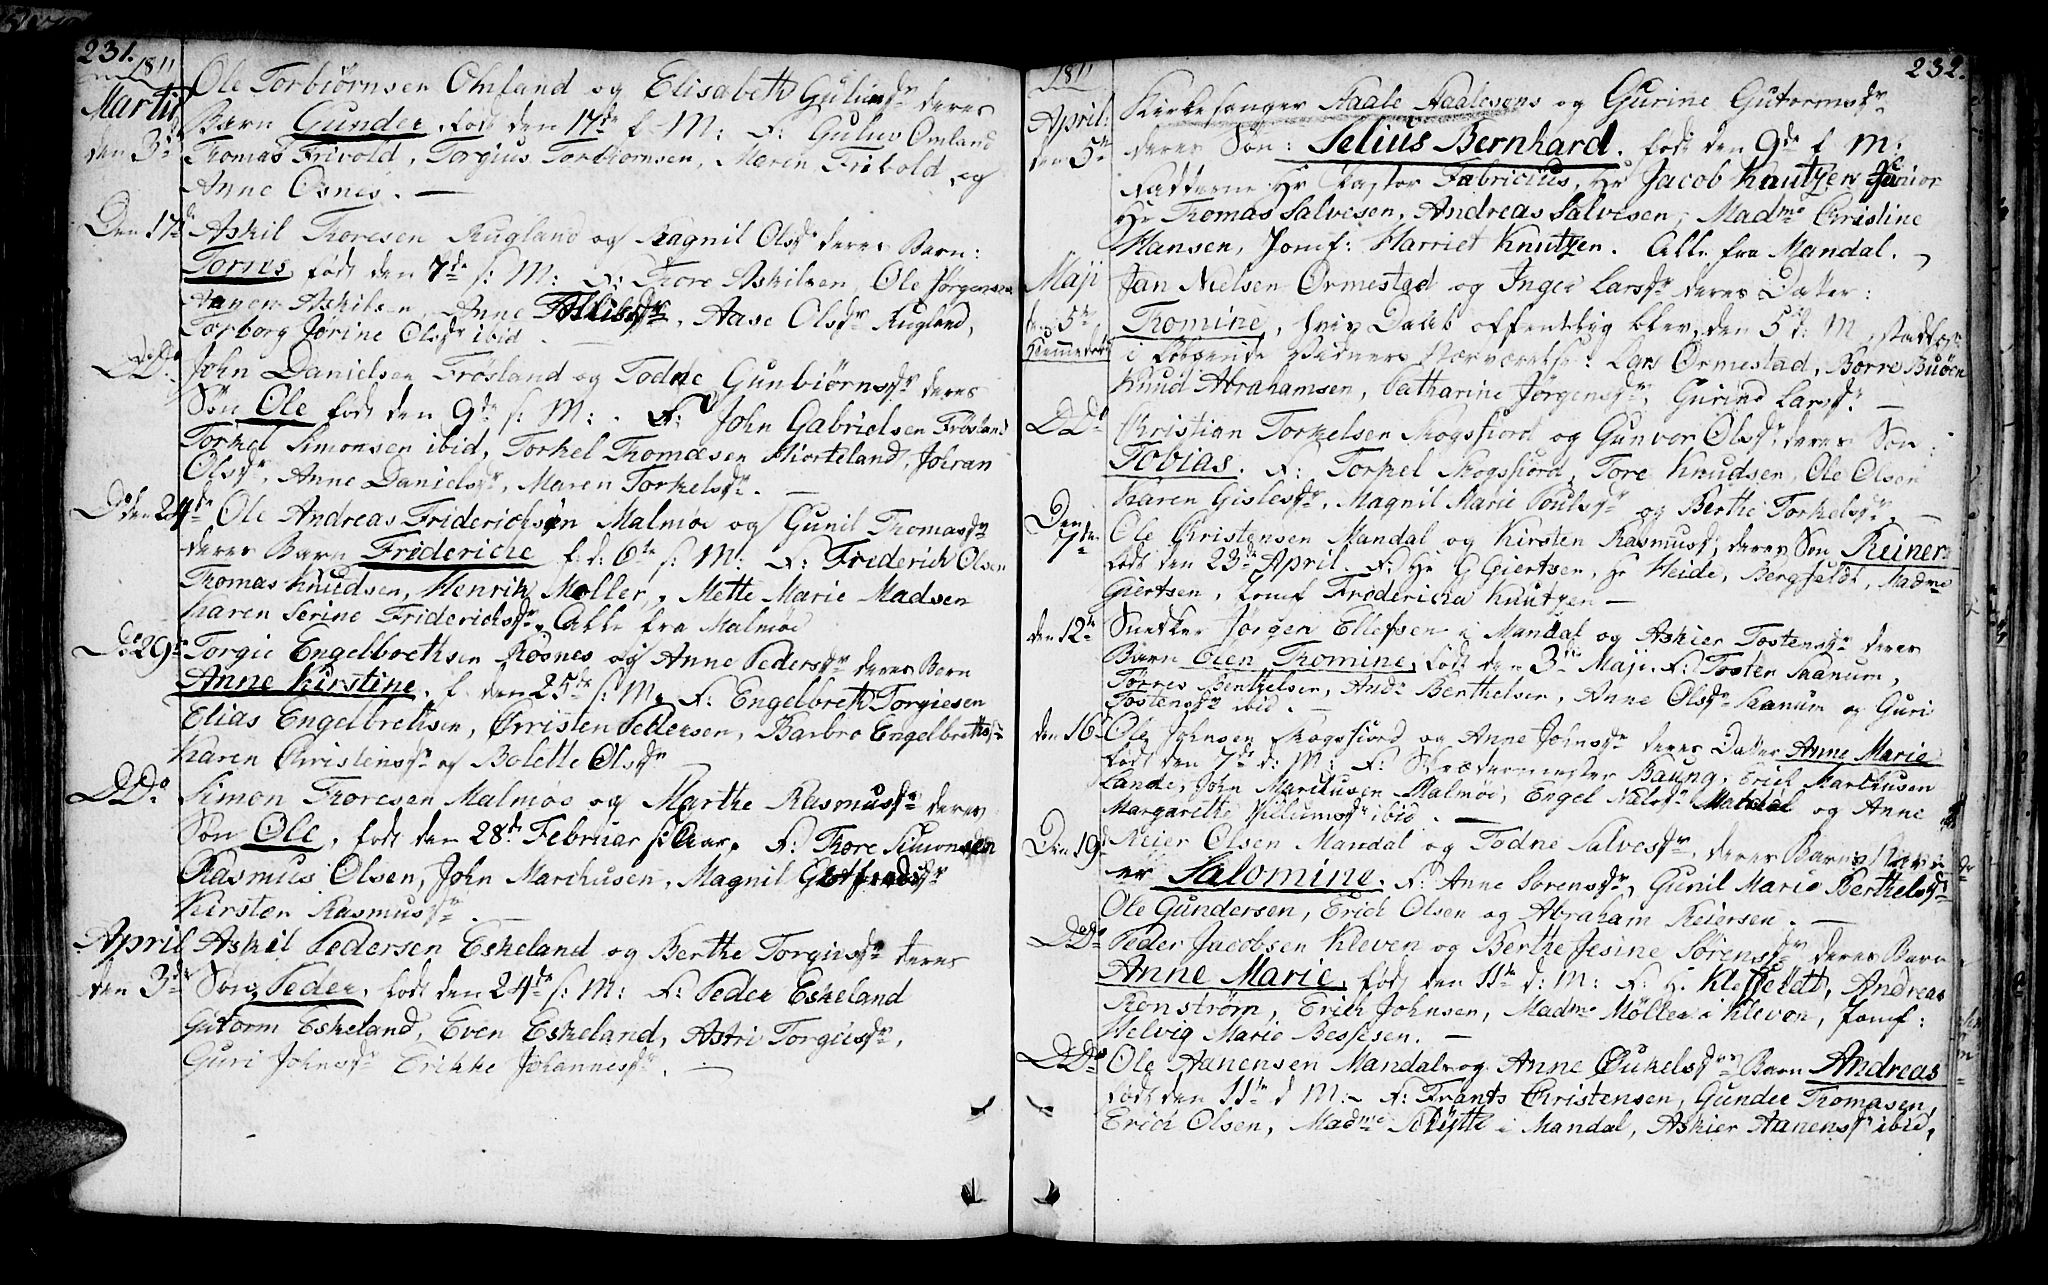 231.
1811
Martii Ole Torbiørnsen Omland og Elisabeth Guliusdr deres
den 3de Barn Gunder, født den 17de f: M: F: Guluv Omland
Thomas Frivold, Torgius Torkiornsen, Maren Fribold og
Anne Osnes. —
Den 17de Askil Thoresen Rugland og Ragnil Olsdr deres Barn:
Torres født den 7de f: M: F: Thore Askilsen, Ole Jørgensen
Aanen Askilsen, Anne, Aase Olsdr Rugland,
Torborg Jorine Olsdr ibid. —
D.D. John Danielsen Frøsland og Todne Gunbiørnsdr deres
Søn Ole født den 9de f: M: F: John Gabrielsen Frøsland
Torkel Simonsen ibid, Torkel Thomæsen Hiorteland, Johan
Olsdr, Anne Danielsdr, Maren Torkelsdr. —
D: den 24de Ole Andreas Fridericksen Malmøe og Gunil Thomasdr
deres Barn Frideriche f: d: 6te f: M: F: Friderich Olsen
Thomas Knudsen, Henrik Møller, Mette Marie Madsen
Karen Serine Friderichsdr. Alle fra Malmøe
D: 29de Torgie Engelbrethsen Rosnes og Anne Pedersdr deres Bern
Anne Kirstine f. den 25de f: M: F: Engelbreth Torgiesen
Elias Engelbrethsen, Christen Pedersen, Barbro Engelbrethsdr
Karen Christensdr og Bolette Olsdr
D.D. Simon Thoresen Malmøe og Marthe Rasmusdr deres
Søn Ole, født den 28de Februar f: Aar. F: Thore Simonsen
Rasmus Olsen, John Marchusen, Magnil
Kirsten Rasmusdr. —
April Askil Pedersen Eskeland og Berthe Torgiusdr deres
den 3de Søn Peder, født den 24de f: M: F: Peder Eskeland
Gutorm Eskeland, Even Eskeland, Astri Torgiusdr,
Guri Johnsdr Erikke Johannesdr. —
232.
1811
April: Kirkesanger Aaale Aaalesens og Gurine Gutormsdr
den 5te deres Søn: Selius Bernhard. født den 9de f. M:
Fadderne Hr Pastor Fabricius, Hr Jacob Knutzen Junior
Hr Thomas Salvesen, Andreas Salvesen, Madme Christine
Hansen, Jomf: Harriet Knutzen. Alle fra Mandal. —
Maji Jan Nielsen Ormestad og Inger Larsdr deres Datter:
den 5te Thomine, hvis Daab offentlig blev den 5 d: M, stadfæst
Hiemmedøbt i følgende Vidners Nærværelse: Lars Ormestad, Børre Buøen
Knud Abrahamsen, Catharine Jørgensdr, Gurine Larsdr. —
D.D. Christian Torkelsen Skogsfiord og Gunvor Olsdr deres Søn:
Tobias. F: Torkel Skogsfiord, Tore Knudsen, Ole Olsen
Karen Gislesdr, Magnil Marie Poulsdr og Berthe Torkelsdr. —
Den 7de Ole Christensen Mandal og Kirsten Rasmusdr, deres Søn Reiner
født den 23de April. F: Hr G Giertsen, Hr Heide, Bergfeldt, Madme
Giertsen, Jomf Frodericha Knutzen —
den 12te Snedker Jørgen Ellefsen i Mandal og Askier Tostensdr deres
Barn Eien Thomine, født den 3die Maji. F: Tosten Skanum,
Tørres Benthelsen, Andr Berthelsen, Anne Olsdr Skanum og Guri
Tostensdr ibid. —
den 16de Ole Johnsen Skogsfiord og Anne Johnsdr deres Datter Anne Marie
født den 7de d: M: F: Skrædermester Baung, Erich Markhusen
Lande, John Marchusen Malmøe, Engel Mandal og Anne
Margarethe Willumsdr ibid. —
Den 19de Reier Olsen Mandal og Todne Salvesdr, deres Barn
Salomine. F: Anne Sørensdr, Gunil Marie Berthelsdr
Ole Gundersen, Erich Olsen og Abraham Reiersen. —
D.D. Peder Jacobsen Kleven og Berthe Jesine Sørensdr deres Barn
Anne Marie, født den 11te d: M: F: H. Kleffeldt, Andreas
Rønstrøm, Erich Johnsen, Madme Møller i Kleven, Jomf:
Helvig Marie Bessesen. —
D.D. Ole Aanensen Mandal og Anne Oukelsdr Barn Andreas
født den 11te d M: F: Frants Christensen, Gunder Thomasen,
Erich Olsen, Madme Schytte i Mandal, Askier Aanensdr ibid,